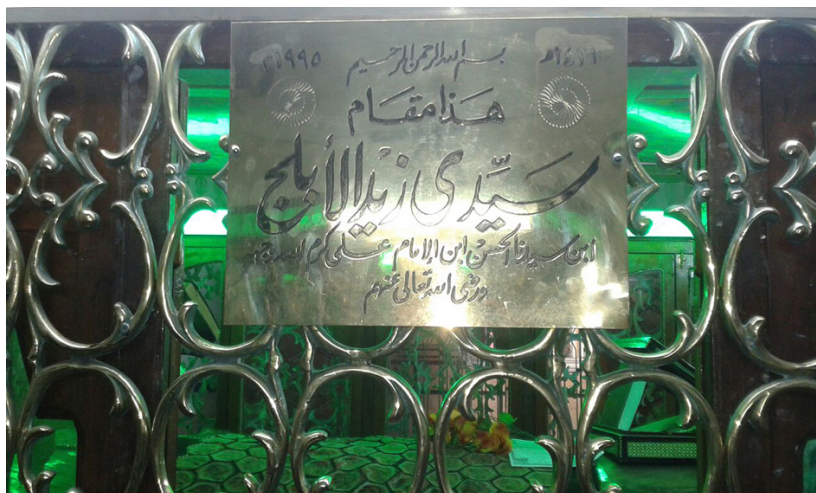 ١٤١٦هـ بسم الله الرحمن الرحيم ١٩٩٥م
هذا مقام
سيّدى زيد الأبلج
ابن سيدنا الحسن ابن الإمام على كرم الله وجهه
ورضى الله تعالى عنهم